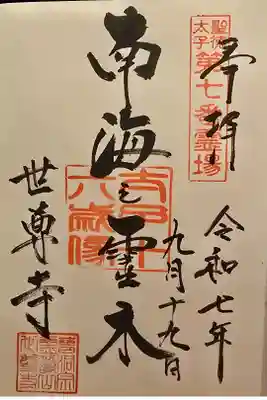 聖徳太子
第七番霊場
奉拝
令和七年
九月十九日
南海之靈木
太子十
六歳像
世尊寺